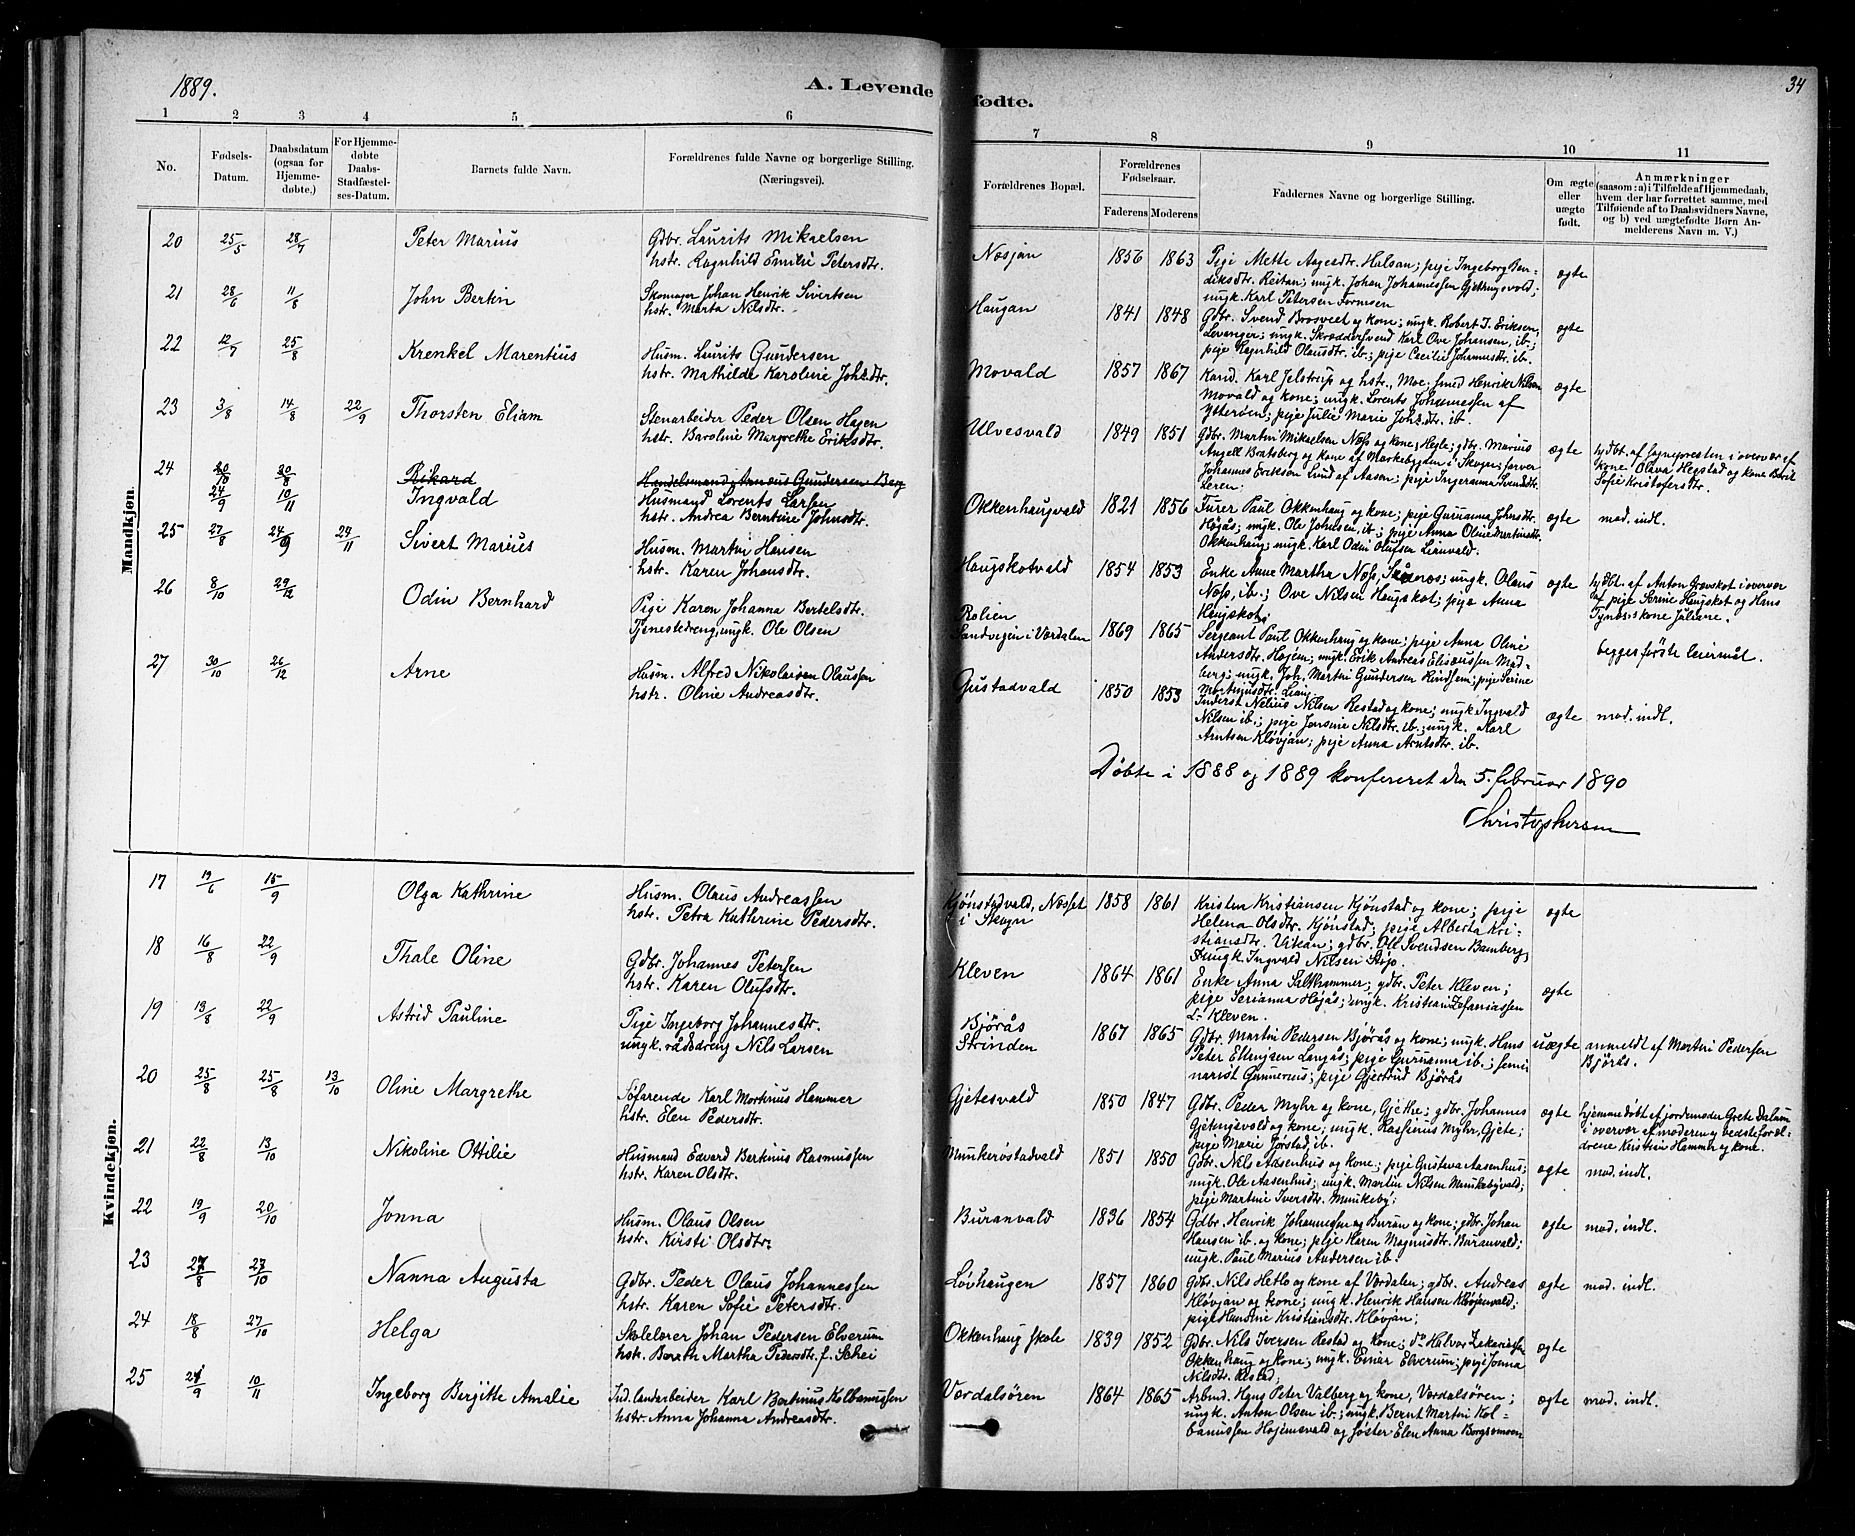 1889.
A. Levende fødte.
34
1 2 3 4 5 6 7 8 9 10 11
No.
Fødsels-Datum.
Daabsdatum (ogsaa for Hjemme-døbte.)
For Hjemme-døbte Daabs-Stadfæstel-ses-Datum.
Barnets fulde Navn.
Forældrenes fulde Navne og borgerlige Stilling.
(Næringsvei).
Forældrenes Bopæl.
Forældrenes Fødselsaar.
Faderens Moderens
Faddernes Navne og borgerlige Stilling.
Om ægte eller uægte født.
Anmærkninger
(saasom: a) i Tilfælde af Hjemmedaab,
hvem der har forrettet samme, med
Tilføiende af to Daabsvidners Navne,
og b) ved uægtefødte Børn An-
melderens Navn m. V.)
Mandkjøn.
20 25/5 28/7 Peter Marius
Gdbr. Laurits Mikaelsen
hstr. Ragnhild Emilie Petersdtr.
Nosjan 1856 1863
Pige Mette Aagesdtr. Halsan; pige Ingeborg Ben-
diksdtr. Reitan; ungk. Johan Johannessen Gjetingsvold;
ungk. Karl Petersen Formsen
ægte
21 28/6 11/8 John Bertin
Skomager Johan Henrik Sivertsen
hstr. Marta Nilsdtr.
Haugan 1841 1848
Gdbr. Svend Brosveet og kone; ungk. Robert J. Eriksen,
Levanger; ungk. Skræddersvend Karl Ove Johansen, ib.;
pige Ragnhild Olausdtr. ib.; pige Cecilie Johannsdtr. ib.
ægte
22 12/7 25/8 Krenkel Marentius
Husm. Laurits Gundersen
hstr. Mathilde Karoline Johsdtr.
Movald 1857 1867
Kand. Karl Jelstrup og hstr., Moe; smed Henrik Nilsen
Movald og kone; ungk. Lorents Johannessen af
Ytterøen; pige Julie Marie Johsdtr. ib.
ægte
23 3/8 14/8 22/9 Thorsten Eliam
Stenarbeider Peder Olsen Hagen
hstr. Baroline Margrethe Eriksdtr.
Ulvesvald 1849 1851
Gdbr. Martin Mikaelsen Næss og kone, Hegle; gdbr. Marius
Angell Bratsberg og kone af Markebygden i Skogn; farver
Johannes Eriksen Lund af Aasen; pige Ingeranna Svendsdtr.
Leren;
ægte
hjdbt. af sognepresten i overvær af
kone Olava Hegstad og kone Berit
Sofie Kristofersdtr.
24 20/10 20/8 Rikard
Handelsmand Arneus Gundersen Berg
24/9 10/11 Ingvald
Husmand Lorents Larsen
hstr. Andrea Berntine Johnsdtr.
Okkenhaugvald 1821 1856
Furer Paul Okkenhaug og kone; pige Gurianna Johnsdtr.
Højås; ungk. Ole Johnsen ib.; pige Anna Oline Martinsdtr.
Okkenhaug; ungk. Karl Odin Olufsen Lianvald.
ægte mod. indl.
25 27/8 24/9 24/11 Sivert Marius
Husm. Martin Hansen
hstr. Karen Johansdtr.
Haugskotvald 1854 1853
Enke Anne Martha Næss, Skånes; ungk. Olaus
Næss, ib.; Ove Nilsen Haugskot; pige Anna
Haugskot;
ægte
hjdbt. af Anton Grevskot i overvær
af pige Serine Haugskot og Hans
Tynæs's kone Juliane.
26 8/10 29/12 Odin Bernhard
Pige Karen Johanna Bertelsdtr.
Tjenestedreng, ungk. Ole Olsen
Rolien
Sandvigen i Værdalen 1869 1865
Sergeant Paul Okkenhaug og kone; pige Anna Oline
Andersdtr. Højem; ungk. Erik Andreas Elisæussen Mad-
berg; ungk. Joh. Martin Gundersen Hindsem; pige Serine
Mortinusdtr. Liang
begges første leiermål.
27 30/10 26/12 Arne
Husm. Alfred Nikolaisen Olaussen
hstr. Oline Andreasdtr.
Gustadvald 1850 1853
Inderst Nelius Nilsen Restad og kone; ungk Ingvald
Nilsen ib.; pige Jensine Nilsdtr. ib.; ungk. Karl
Arntsen Kløvjan; pige Anna Arntsdtr. ib.
ægte mod. indl.
Døbte i 1888 og 1889 konfereret den 5. februar 1890
Christophersen
Kvindekjøn.
17 19/6 15/9 Olga Kathrine
Husm. Olaus Andreassen
hstr. Petra Kathrine Pedersdtr.
Kjønstadvald, Næsset
i Skogn 1858 1861
Kristen Kristiansen Kjønstad og kone; pige
Helena Olsdtr. Kjønstad; pige Alberta Kri-
stiansdtr. Vikan; gdbr. Ole Svendsen Bamberg,
ungk. Ingvald Nilsen Støp.
ægte
18 16/8 22/9 Thale Oline
Gdbr. Johannes Petersen
hstr. Karen Olufsdtr.
Kleven 1864 1861
Enke Anna Salthammer; gdbr. Peter Kleven;
pige Serianna Højås; ungk. Kristian Zefaniassen
Kleven.
ægte
19 13/8 22/9 Astrid Pauline
Pige Ingeborg Johannesdtr.
ungk. rådsdreng Nils Larsen
Bjørås
Strinden 1867 1865
Gdbr. Martin Pedersen Bjørås og kone; ungk. Hans
Peter Ellingsen Langås; pige Gurianna ib.; semi-
narist Gunnerius; pige Gjertrud Bjørås
uægte anmeldt af Martin Pedersen
Bjørås.
20 25/8 25/8 13/10 Oline Margrethe
Søfarende Karl Mortinus Hammer
hstr. Elen Pedersdtr.
Gjetesvald 1850 1847
Gdbr. Peder Myhr og kone, Gjethe; gdbr. Johannes
Gjetingsvold og kone; ungk. Rasfinus Myhr, Gjete;
pige Marie Jørstad ib.
ægte
hjemmedøbt af jordemoder Grete Dalum
i overvær af moderen og bedsteforæl-
drene Kristian Hammer og kone.
21 22/8 13/10 Nikoline Ottilie
Husmand Edvard Bertinus Rasmussen
hstr. Karen Olsdtr.
Munkerøstadvald 1851 1850
Gdbr. Nils Aasenhus og kone; pige Gustava Aasenhus;
ungk. Ole Aasenhus; ungk. Martin Nilsen Munkebyvald;
pige Martine Iversdtr. Munkeby;
ægte mod. indl.
22 19/9 20/10 Jonna
Husm. Olaus Olsen
hstr. Kirsti Olsdtr.
Buranvald 1836 1854
Gdbr. Henrik Johannessen Buran og kone; gdbr. Johan
Hansen ib. og kone; pige Karen Magnusdtr. Buranvald;
ungk. Paul Marius Andersen ib.
ægte mod. indl.
23 27/8 27/10 Nanna Augusta
Gdbr. Peder Olaus Johannessen
hstr. Karen Sofie Petersdtr.
Løvhaugen 1857 1860
Gdbr. Nils Hetlo og kone af Værdalen; gdbr. Andreas
Kløvjan og kone; ungk. Henrik Hansen Kløvjanvald;
pige Handine Kristiansdtr. Kløvjan;
ægte mod. indl.
24 18/8 27/10 Helga
Skolelærer Johan Pedersen Elverum
hstr. Berath Martha Pedersdtr. f. Schei
Okkenhaug skole 1839 1852
Gdbr. Nils Iversen Restad og kone; do Halvor Zakariassen
Okkenhaug og kone; ungk. Einar Elverum; pige Jonna
Nilsdtr. Restad;
ægte
25 21/9 10/11 Ingeborg Bergitte Amalie
Ind. landarbeider Karl Bertinus Kolbanussen
hstr. Anna Johanna Andreasdtr.
Værdalsøren 1864 1865
Arbmd. Hans Peter Valberg og kone, Værdalsøren;
ungk. Anton Olsen ib.; ungk. Bernt Martin Kol-
banussen Højemsvald og søster Elen Anna Borgsmoen
ægte mod. indl.